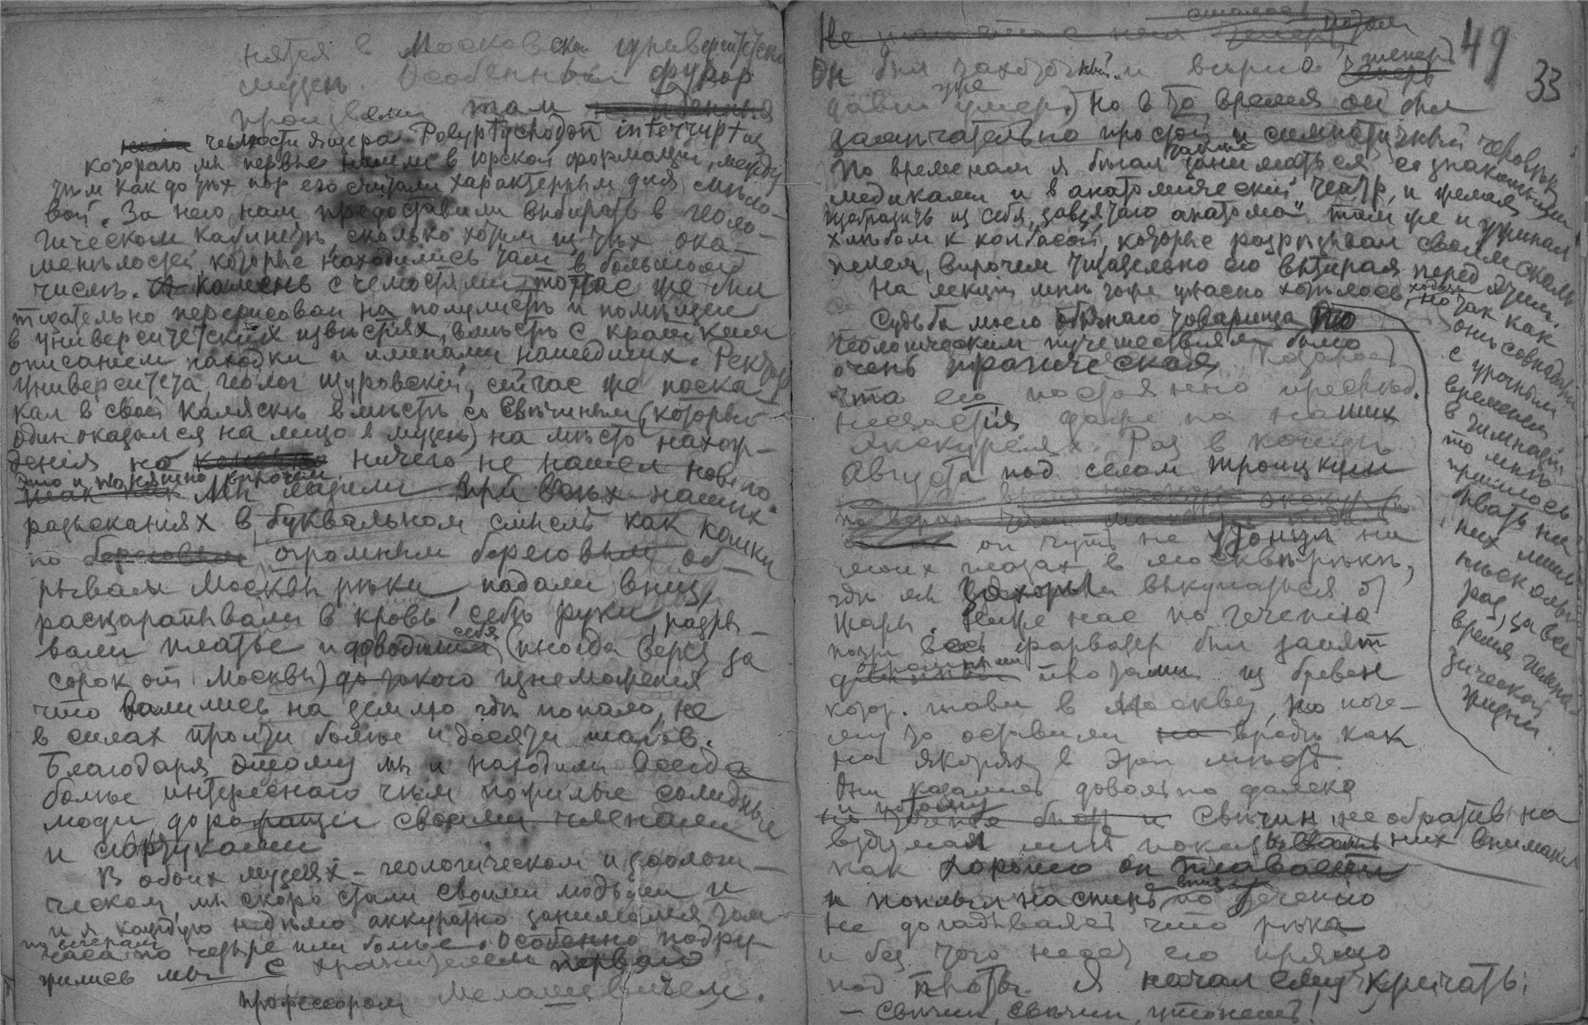 нятся в Московском университетском
музеѣ. Особенный фурор
произвели там
челюсти ящера Polyptychodon interruptus
котораго мы первые нашли в юрской формацiи, между
тѣм как до тѣх пор его считали характерным для мѣло-
вой. За него нам предоставили выбирать в геоло-
гическом кабинетѣ сколько хотим из тѣх ока-
менѣлостей которые находились там в большом
числѣ. А камень с челюстями тотчас же был
тщательно перерисован на полулистѣ и помѣщен
в университетских извѣстiях, вмѣстѣ с кратким
описанiем находки и именами нашедших. Ректор
Университета, геолог Щуровскiй, сейчас же поска-
кал в своей каляскѣ вмѣстѣ со Свѣчиным (который
один оказался на лицо в музеѣ) на мѣсто нахож-
денiя но ничего не нашел новаго
Это и понятно впрочем
Мы лазили при всѣх наших
разысканiях в буквальном смыслѣ как кошки
по береговым огромным береговым об-
рывам Москвы рѣки падали вниз,
расцарапывали в кровь себѣ руки, разры-
вали платье и доводили себя (иногда верст за
сорок от Москвы) до такого изнеможенiя
что валились на землю гдѣ попало, не
в силах пройти болѣе и десяти шагов.
Благодаря этому мы и находили всегда
болѣе интереснаго чѣм пожилые солидные
люди дорожащiе своими членами
и сюртуками
В обоих музеях - геологическом и зоологи-
ческом мы скоро стали своими людьми и
и я каждую недѣлю аккуратно занимался там
по вечерам
часа по четыре или болѣе. Особенно подру-
жились мы с хранителем перваго
профессором Милашевичем.
49
33
Не знаю что с ним теперь
Он был чахоточный и вѣрно теперь
давно уже умер, но в то время он был
замѣчательно простой и симпатичный человѣк
По временам я бѣгал также заниматься со знакомыми
медиками и в анатомическiй театр, и желая
изобразить из себя „завзятаго анатома“ там же и ужинал
хлѣбом с колбасой, которые разрѣзывал своим скаль-
пелем, впрочем тщательно его вытирая перед этим.
На лекцiи мнѣ тоже ужасно хотѣлось ходить, но так как
они совпадали
с урочным
временем
в гимназiи
то мнѣ
пришлось
бывать на
них лишь
нѣсколько
раз, за все
время гимна-
зической
жизни.
Судьба моего бѣднаго товарища по
геологическим путешествiям была
очень трагическая
что его постоянно преслѣд.
несчастiя даже на наших
экскурсiях. Раз в концѣ
Августа под селом Троицким
он чуть не утонул на
моих глазах в Москвѣ-рѣкѣ,
гдѣ мы захотѣли выкупаться от
жары. Ниже нас по теченiю
почти весь фарватер был занят
огромными плотами из бревен
котор. плыли в Москву, но поче-
му то оставили вродѣ как
на якорях в этом мѣстѣ
Они казались довольно далеко
и потому Свѣчин не обратив на
них вниманiя
вздумал мнѣ показывать
как хорошо он плавает
и поплыл на спинѣ вниз по теченiю
не догадываясь что рѣка
и без того несет его прямо
под плоты. Я начал ему кричать:
— Свѣчин, Свѣчин, утонешь!